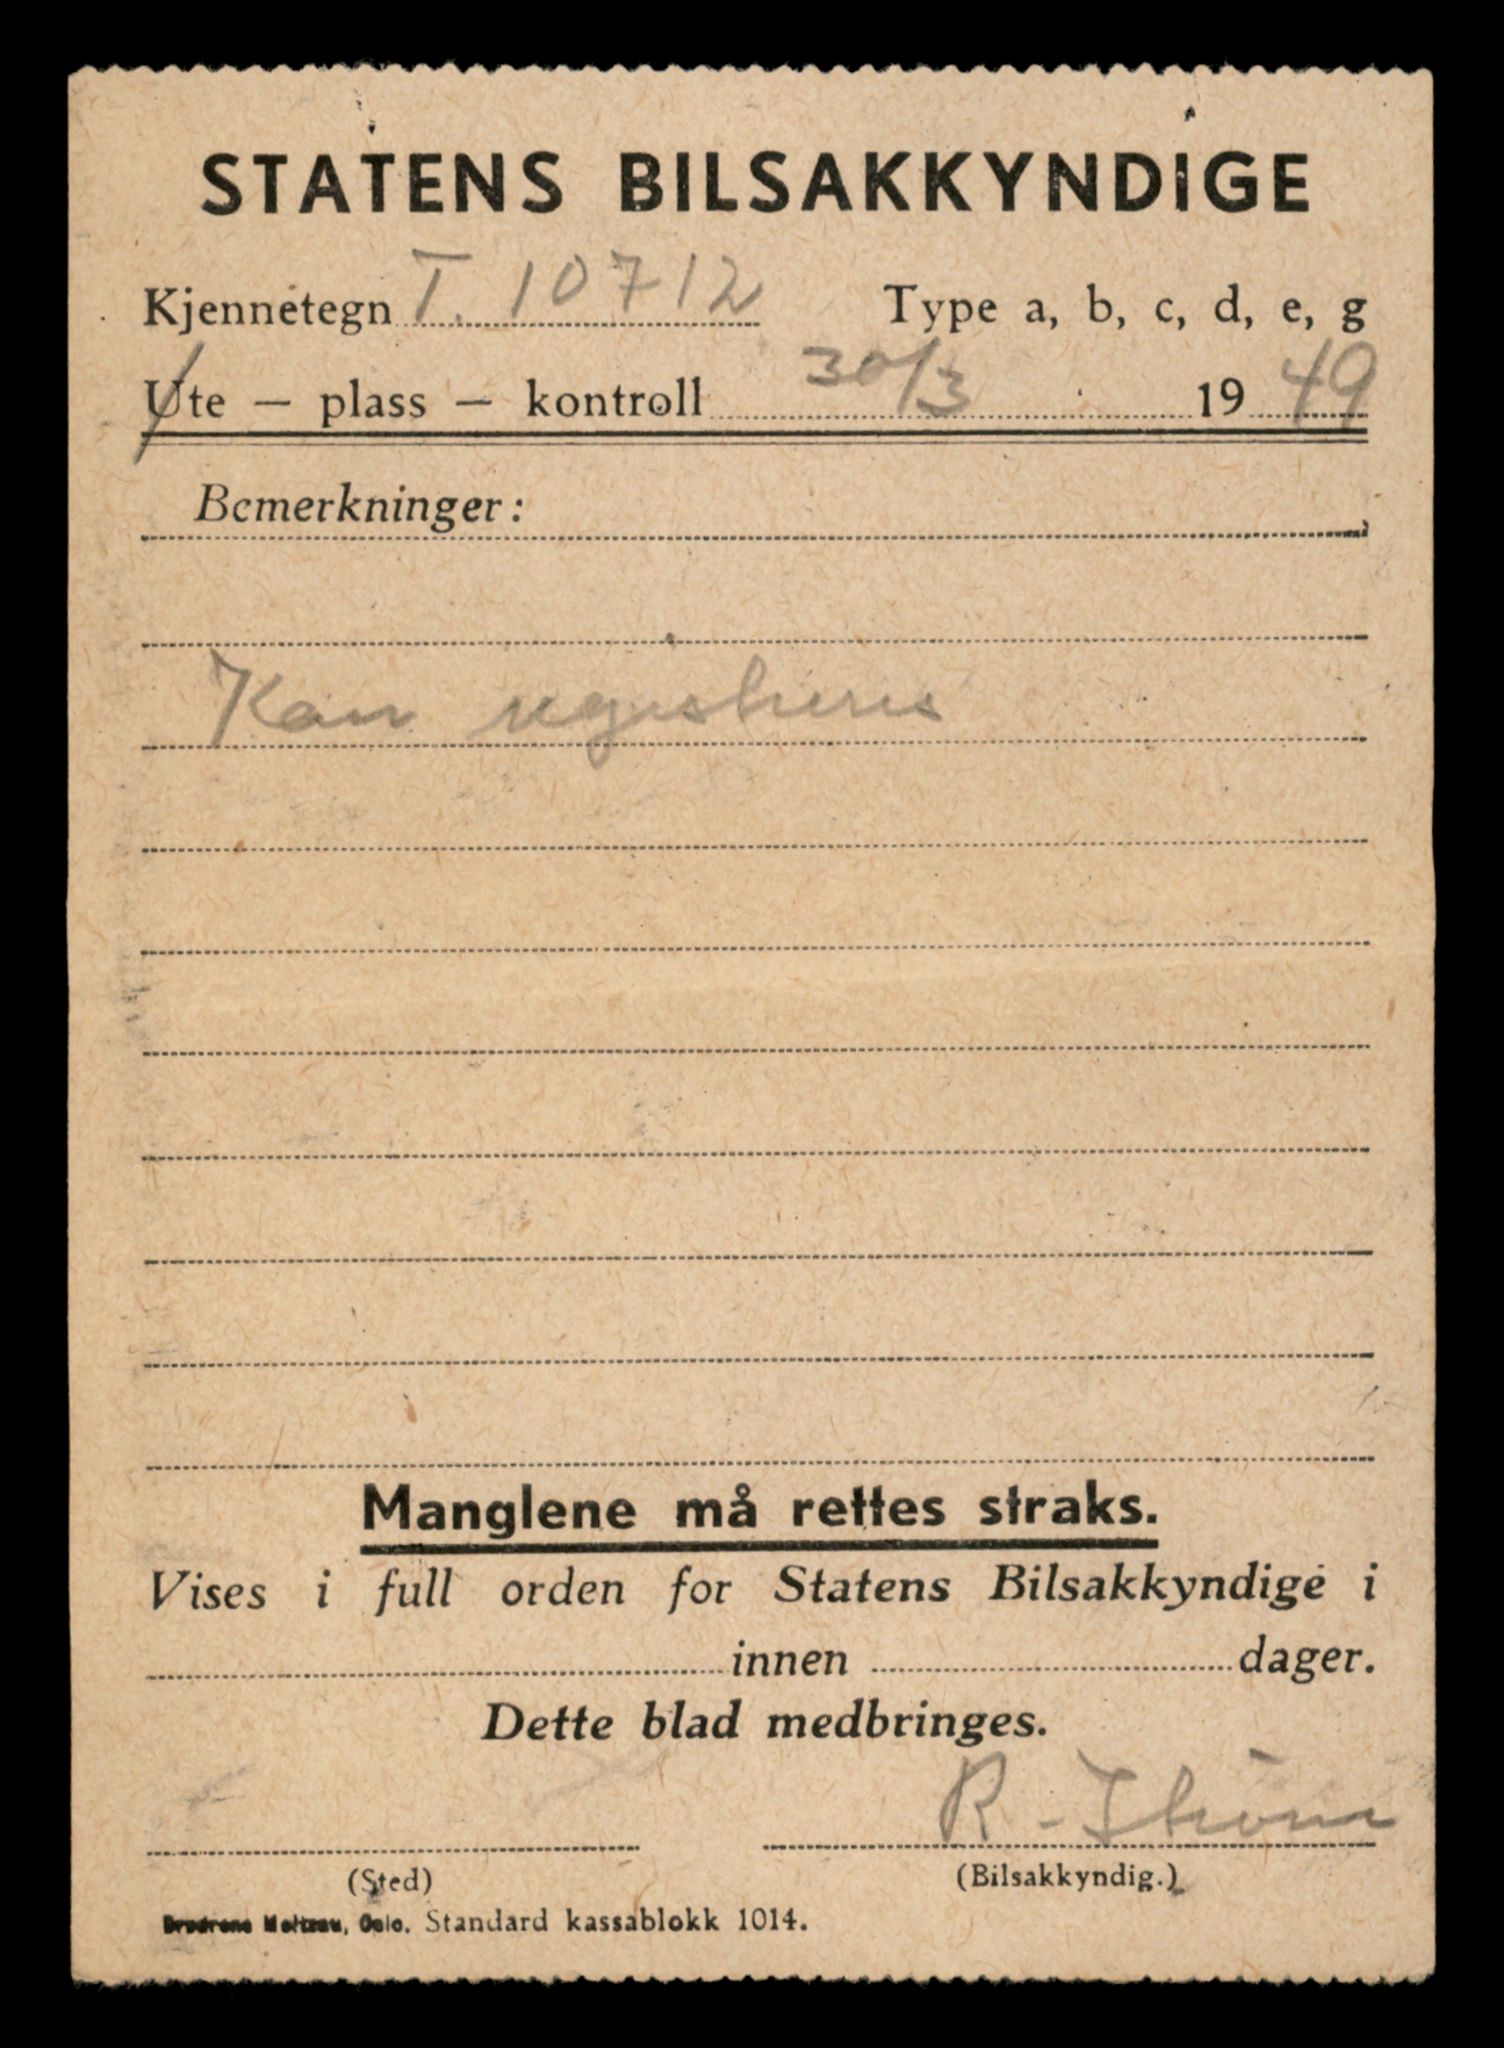 STATENS BILSAKKYNDIGE
Kjennetegn T. 10712 Type a, b, c, d, e, g
Ute — plass — kontroll 30/3 1949
Bemerkninger:
Kan registreres
Manglene må rettes straks.
Vises i full orden for Statens Bilsakkyndige i
innen dager.
Dette blad medbringes.
R.
(Sted) (Bilsakkyndig.)
Brødrene Meltzau, Oslo. Standard kassablokk 1014.